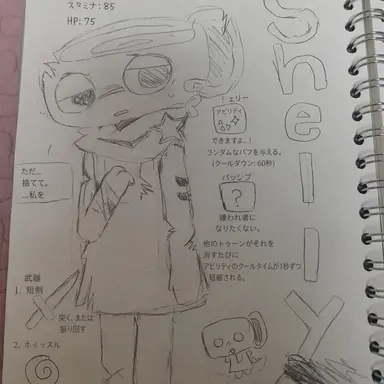 スタミナ: 85
HP: 75
Shelly
！ェリー
アビリティ
できますよ、！
ランダムなバフを与える。
(クールダウン: 60秒)
パッシブ
?
嫌われ者に
なりたくない。
他のトゥーンがそれを
消すたびに
アビリティのクールタイムが1秒ずつ
短縮される。
ただ...
捨てて。
...私を
武器
1. 短剣
突く、または
振り回す
2. ホイッスル